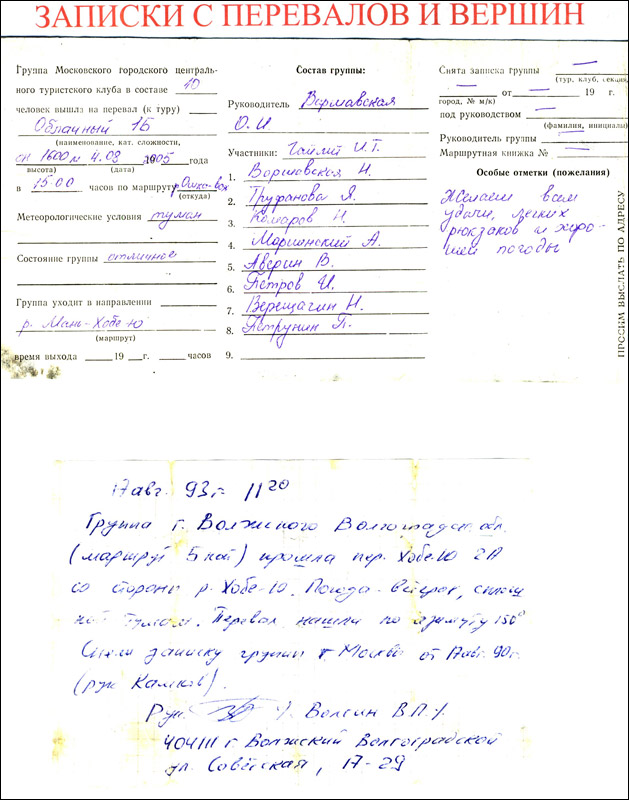 ЗАПИСКИ С ПЕРЕВАЛОВ И ВЕРШИН
Группа Московского городского централь-
ного туристского клуба в составе 10
человек вышла на перевал (к туру)
Облачный 1Б
(наименование, кат. сложности,
1600 м 4.08 2005 года
высота) (дата)
в 15-00 часов по маршруту
(откуда)
Метеорологические условия туман
Состояние группы отличное
Группа уходит в направлении
р. Мань-Хобе-ю
(маршрут)
время выхода 19 г. часов
Состав группы:
Руководитель Варшавская
О.И
Участники: И.Т.
1. Варшавская Н.
2. Труфанова Я.
3. Комаров Н.
4. Марианский А.
5. Аверин В.
6. Петров И.
7. Верещагин Н.
8. Петрунин П.
9.
Снята записка группы —
(тур. клуб, секция,
— от — 19 г.
город, № м/к)
под руководством —
(фамилия, инициалы)
Руководитель группы —
Маршрутная книжка № —
Особые отметки (пожелания)
Желаем всем
удачи, легких
рюкзаков и хоро-
шей погоды
ПРОСИМ ВЫСЛАТЬ ПО АДРЕСУ
17 авг. 93 г. 11 20
Группа г. Волжского Волгоградск. обл.
(маршрут 5 кой) прошла пер. Хобе-Ю 2А
со стороны р. Хобе-Ю. Погода - ветрен, сплош
ной туман. Перевал нашли по азимуту 150°
Сняли записку группы г. Москвы от 17 авг. 90 г.
(рук )
Рук. /Волгин В.П./
404111 г Волжский Волгоградской
ул. Советская, 17-29